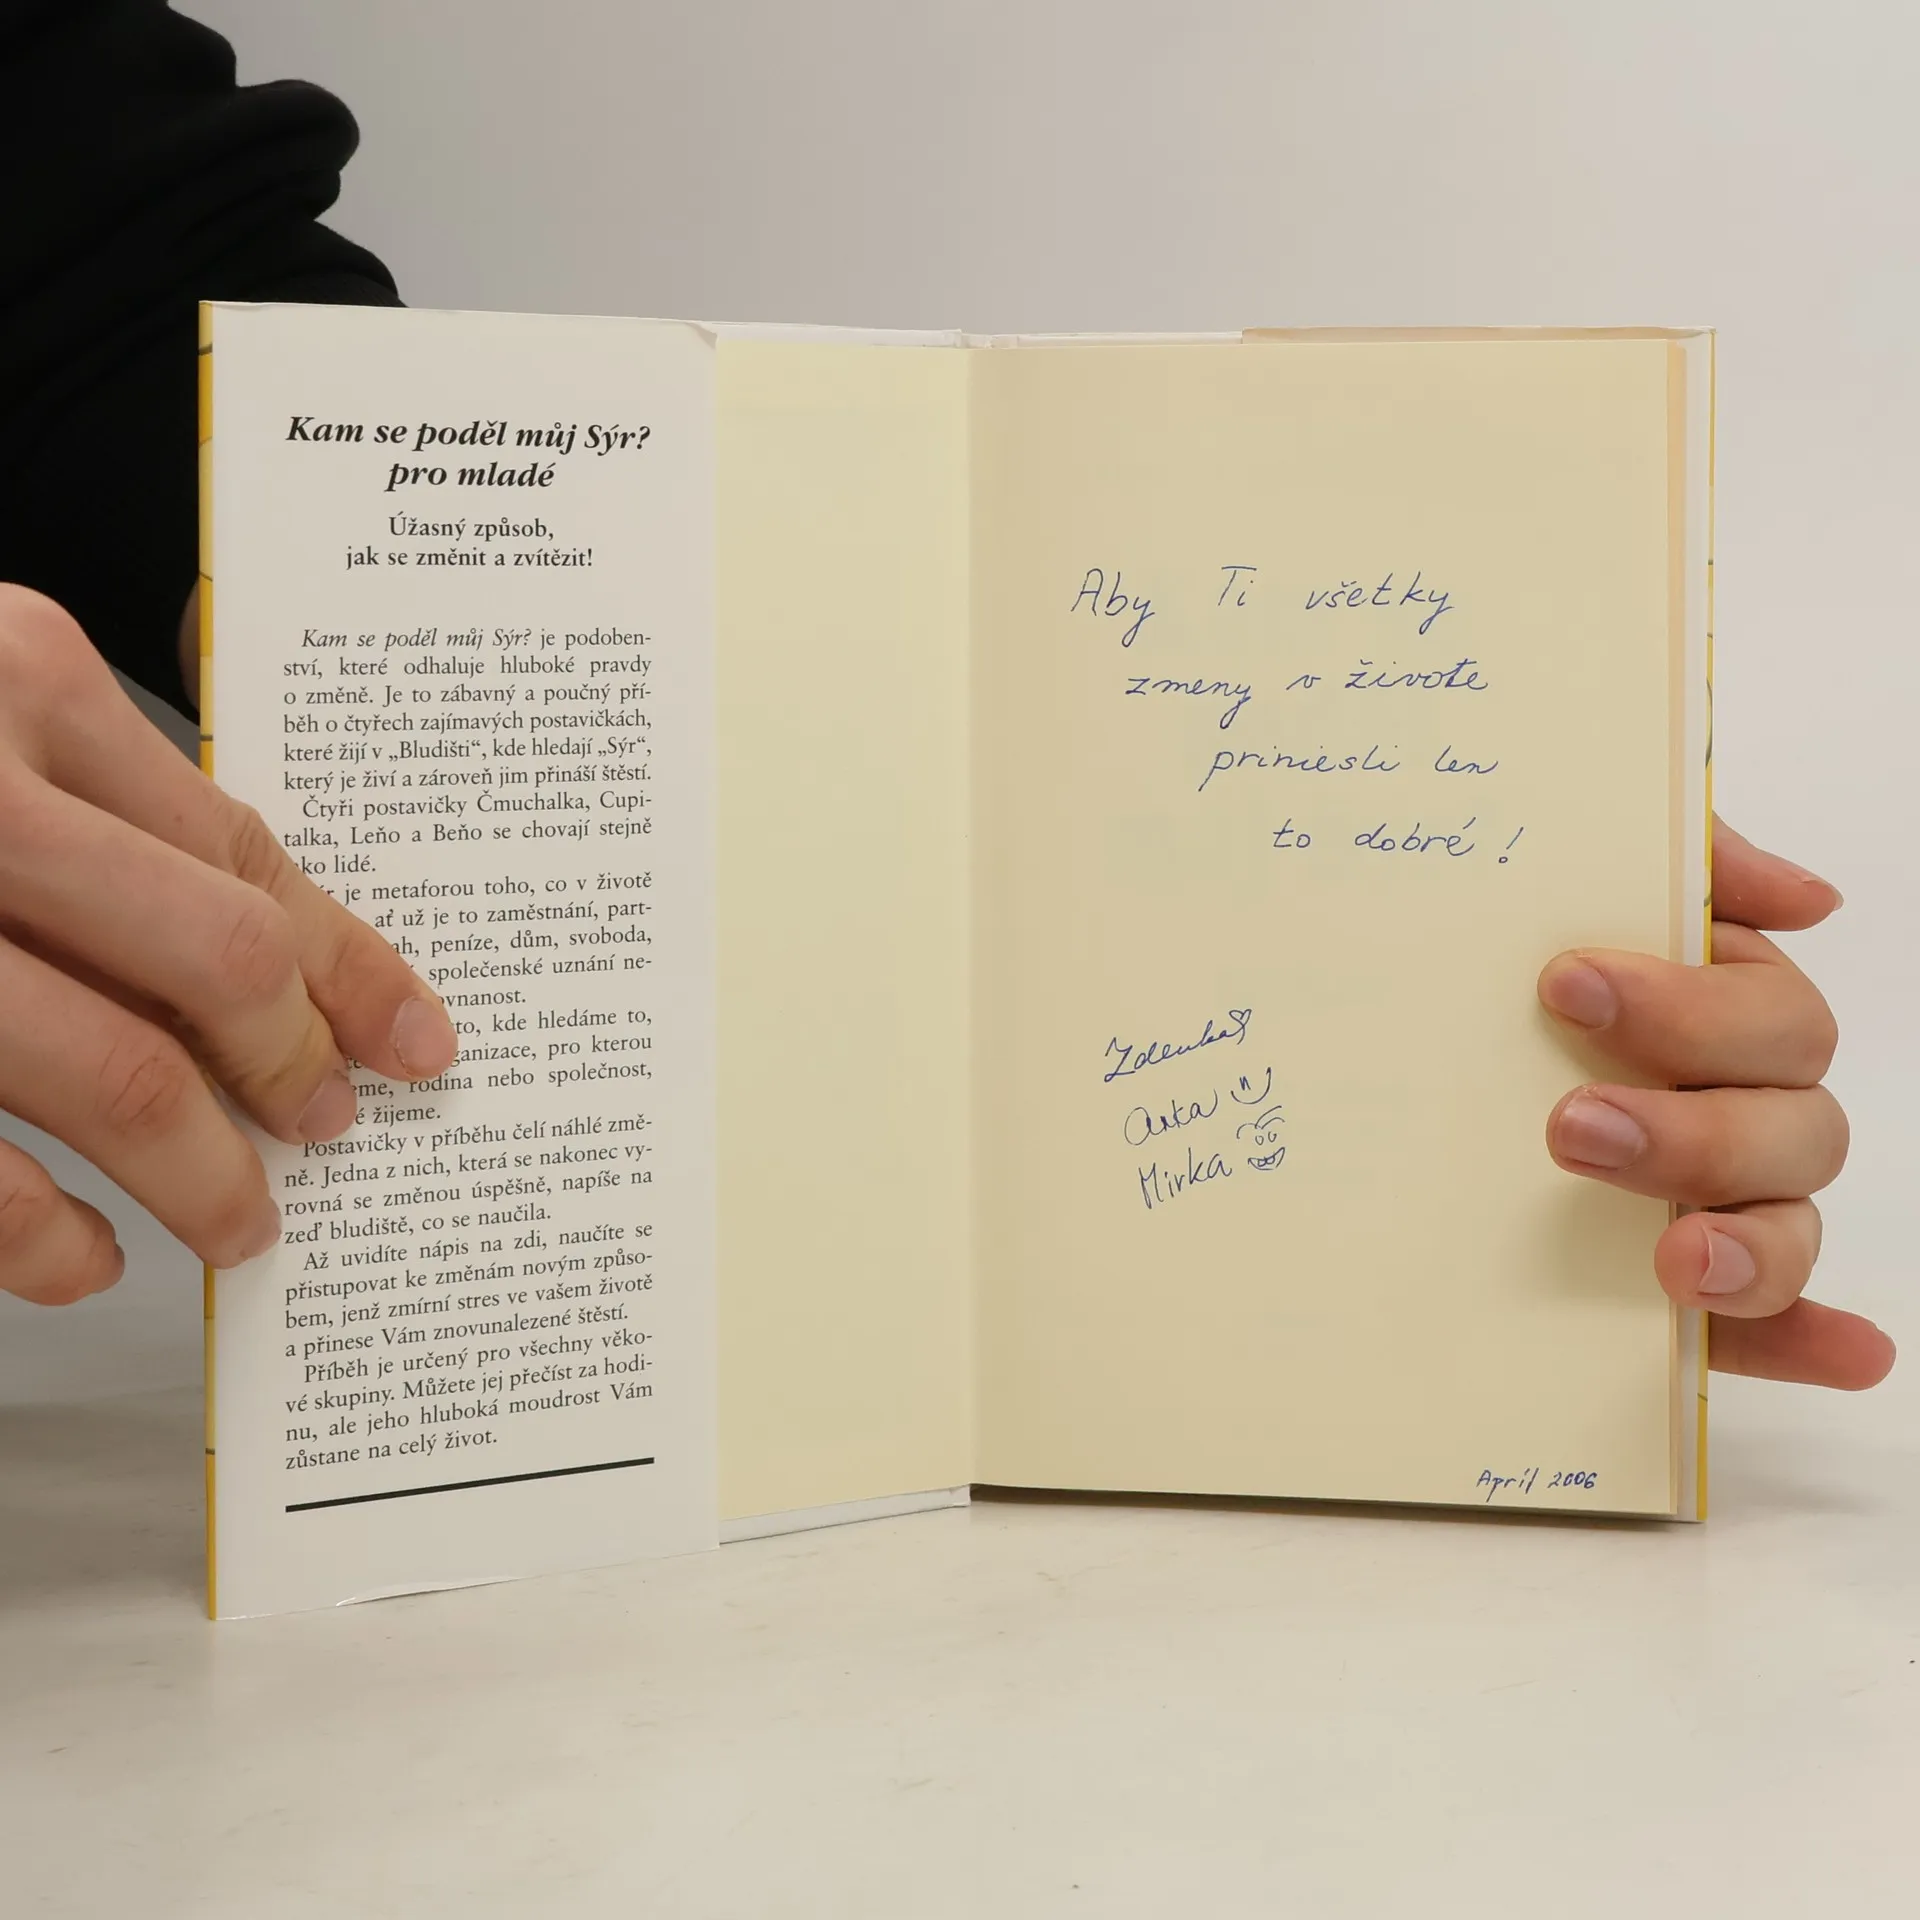 Kam se poděl můj Sýr?
pro mladé
Úžasný způsob,
jak se změnit a zvítězit!
Kam se poděl můj Sýr? je podoben-
ství, které odhaluje hluboké pravdy
o změně. Je to zábavný a poučný pří-
běh o čtyřech zajímavých postavičkách,
které žijí v „Bludišti“, kde hledají „Sýr“,
který je živí a zároveň jim přináší štěstí.
Čtyři postavičky Čmuchalka, Cupi-
talka, Leňo a Beňo se chovají stejně
ko lidé.
je metaforou toho, co v životě
ať už je to zaměstnání, part-
ah, peníze, dům, svoboda,
společenské uznání ne-
ovnanost.
sto, kde hledáme to,
ganizace, pro kterou
eme, rodina nebo společnost,
é žijeme.
Postavičky v příběhu čelí náhlé změ-
ně. Jedna z nich, která se nakonec vy-
rovná se změnou úspěšně, napíše na
zeď bludiště, co se naučila.
Až uvidíte nápis na zdi, naučíte se
přistupovat ke změnám novým způso-
bem, jenž zmírní stres ve vašem životě
a přinese Vám znovunalezené štěstí.
Příběh je určený pro všechny věko-
vé skupiny. Můžete jej přečíst za hodi-
nu, ale jeho hluboká moudrost Vám
zůstane na celý život.
Aby Ti všetky
zmeny v živote
priniesli len
to dobré!
Zdenka
Anka
Mirka
Apríl 2006